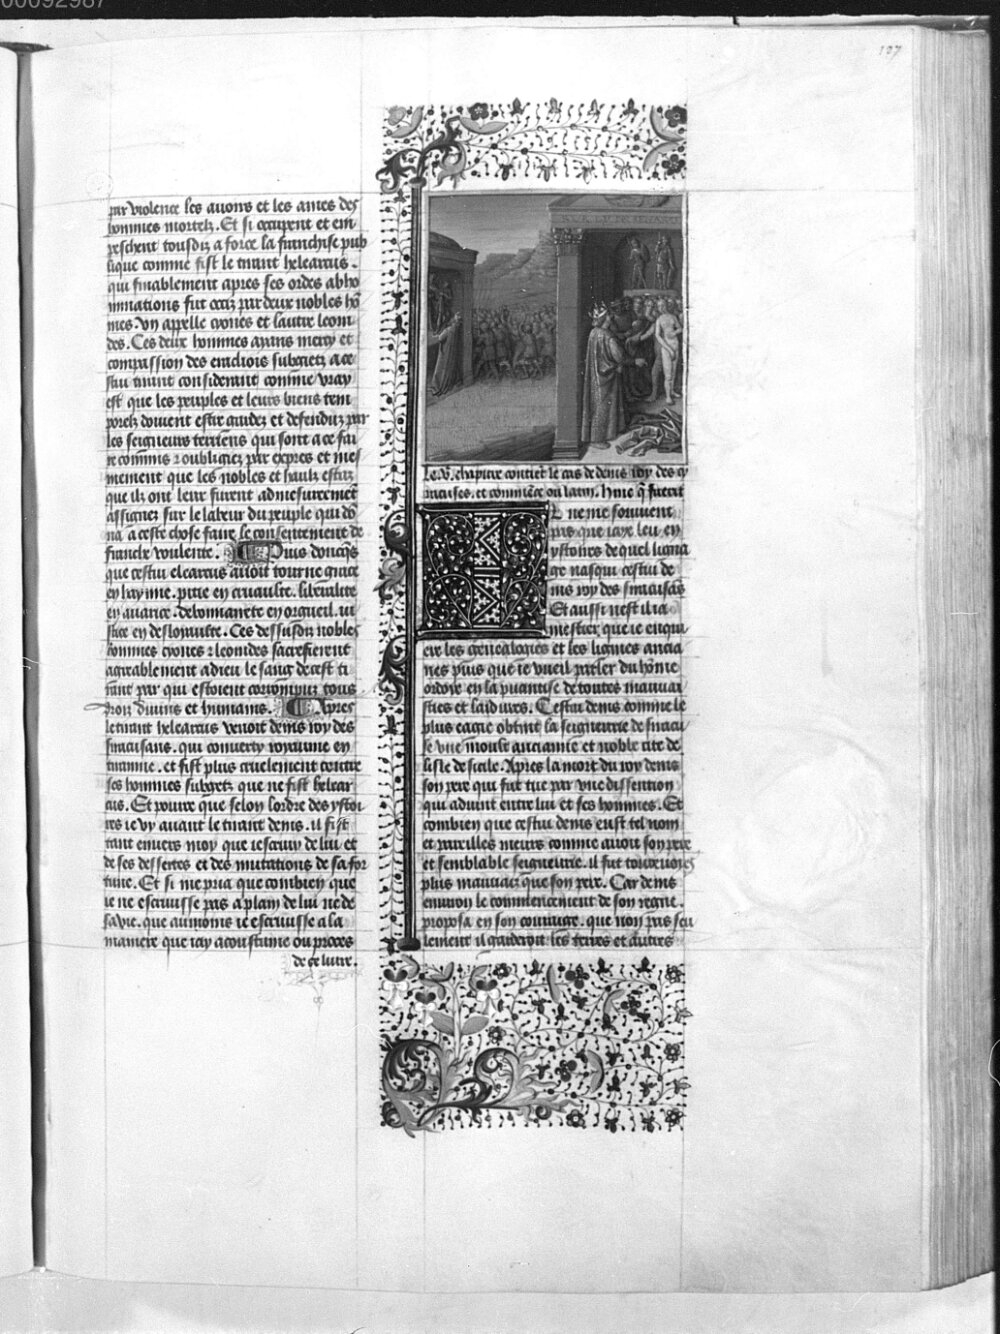 00092987
107
par violence les auoirs et les ames des
hommes mortelz. Et si occupent et em
peschent tousdiz a force la franchise pub
lique comme fist le tirant helearcus.
qui finablement apres ses ordes abho
minations fut occiz par deux nobles hō
mes. vn appelle cyones et lautre leoni
des. Ces deux hommes ayans mercy et
compassion des eracliois subgietz a ce
stui tirant considerant comme vray
est que les peuples et leurs biens tem
porelz doiuent estre gardez et defenduz par
les seigneurs terriens qui sont a ce fai
re commis et oubligiez par expres et mes
mement que les nobles et haulx estaz
que ilz ont leur furent admesureemēt
assignez sur le labeur du peuple qui dō
na a ceste chose faire le consentement de
franche voulente. Puis doncq̄s
que cestui elearcus auoit tourne grace
en hayne. pitie en cruaulte. liberalite
en auarice. debonnairete en orgueil. iu
stice en desloyaulte. Ces dessusdiz nobles
hommes cyones et leonides sacrefierent
agreablement a dieu le sang de cest ti
rant par qui estoient corrompuz tous
droiz diuins et humains. Apres
le tirant helearcus venoit denis roy des
siracusans. qui conuerty royaume en
tirannie. et fist plus cruelement contre
ses hommes subgetz que ne fist helear
cus. Et pource que selon lordre des ystoi
res ie vy auant le tirant denis. il fist
tant enuers moy que iescriuy de lui et
de ses dessertes et des mutations de sa for
tune. Et si me pria que combien que
ie ne escriuisse pas a plain de lui ne de
sa vie. que aumoins ie escriuisse a la
maniere que iay acoustume ou proces
de ce liure.
Le .v. chapitre contiēt le cas de denis roy des cy
racuses. et commēce ou latin. Hinc q̄ fuerit
L ne me souuient
pas que iaye leu en
ystoires de quel ligna
ge nasqui cestui de
nis roy des siracusās
Et aussi nest il ia
mestier que ie enqui
ere les genealogies et les lignies ancia
nes puis que ie vueil parler du hōme
ordoie en la puantise de toutes mauuai
sties et laidures. Cestui denis comme le
plus eagie obtint la seigneurie de siracu
se vne moult ancianne et noble cite de
lisle de sicile. Apres la mort du roy denis
son pere qui fut tue par vne dissention
qui aduint entre lui et ses hommes. Et
combien que cestui denis eust tel nom
et pareilles meurs comme auoit son pere
et semblable seigneurie. il fut touteuoies
plus mauuaiz que son pere. Car denis
enuiron le commencement de son regne.
proposa en son courage. que non pas seu
lement il garderoit les terres et autres